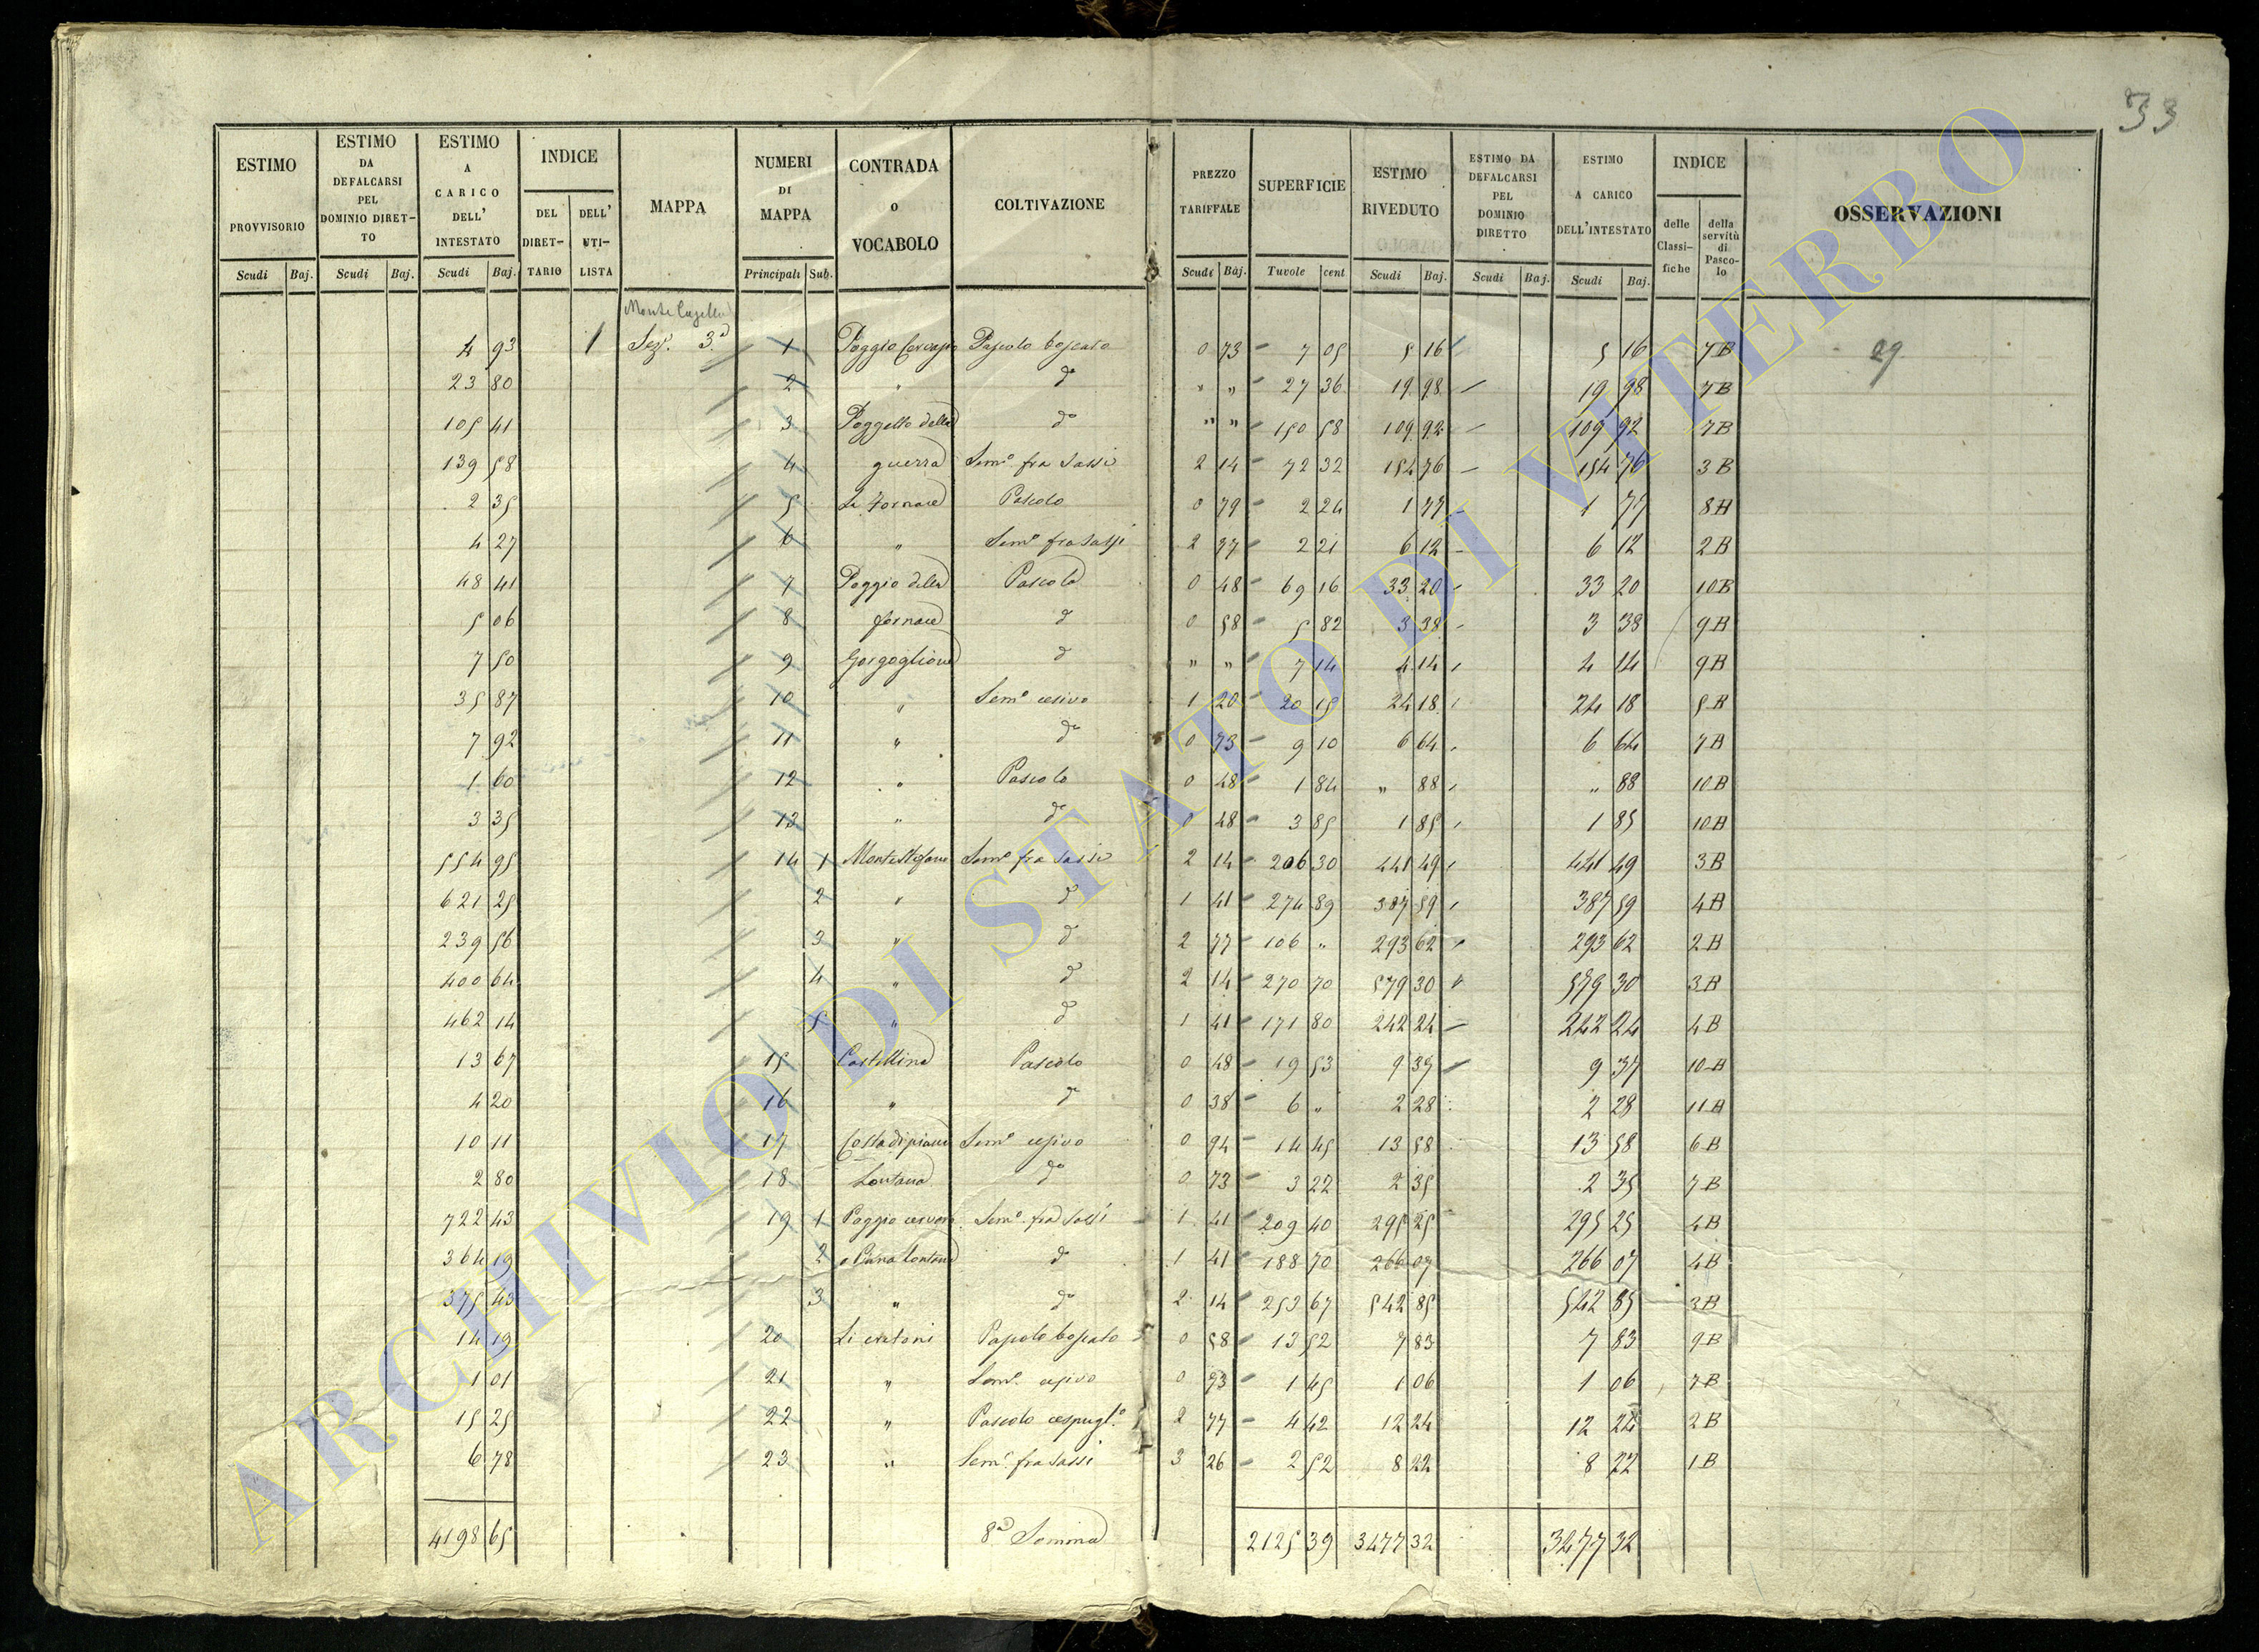 33
ESTIMO PROVVISORIO Scudi Baj.
ESTIMO DA DEFALCARSI PEL DOMINIO DIRETTO Scudi Baj.
ESTIMO A CARICO DELL' INTESTATO Scudi Baj.
INDICE DEL DIRETTARIO DELL' UTILISTA
MAPPA
NUMERI DI MAPPA Principali Sub.
CONTRADA O VOCABOLO
COLTIVAZIONE
PREZZO TARIFFALE Scudi Baj.
SUPERFICIE Tavole cent
ESTIMO RIVEDUTO Scudi Baj.
ESTIMO DA DEFALCARSI PEL DOMINIO DIRETTO Scudi Baj.
ESTIMO A CARICO DELL'INTESTATO Scudi Baj.
INDICE delle Classifiche della servitù di Pascolo
OSSERVAZIONI
4 93 1 Sez.e 3.a 1 Poggio Pascolo boscato 0 73 7 05 5 16 5 16 7B 29
23 80 2 " do " " 27 36 19 98 19 98 7B
105 41 3 Poggetto della do " " 150 58 109 92 109 92 7B
139 58 4 guerra Sem.o fra sassi 2 14 72 32 154 76 154 76 3B
2 35 5 La Fornace Pascolo 0 79 2 24 1 77 1 77 8A
4 27 6 " Sem.o fra sassi 2 77 2 21 6 12 6 12 2B
48 41 7 Poggio della Pascolo 0 48 69 16 33 20 33 20 10B
5 06 8 fornace d 0 58 5 82 3 38 3 38 9B
7 50 9 Gorgoglione d " " 7 14 4 14 4 14 9B
35 87 10 " Sem.o cesivo 1 20 20 15 24 18 24 18 5B
7 92 11 " do 0 73 9 10 6 64 6 64 7B
1 60 12 " Pascolo 0 48 1 84 " 88 " 88 10B
3 35 13 " do 48 3 85 1 85 1 85 10B
554 95 14 1 Sem.o fra sassi 2 14 206 30 441 49 441 49 3B
621 25 2 " d 1 41 274 89 387 59 387 59 4B
239 56 3 " d 2 77 106 " 293 62 293 62 2B
400 64 4 " d 2 14 270 70 579 30 579 30 3B
462 14 5 " d 1 41 171 80 242 24 242 24 4B
13 67 15 Castellina Pascolo 0 48 19 53 9 37 9 37 10B
4 20 16 " do 0 38 6 " 2 28 2 28 11B
10 11 17 Costa di piana Sem.o cesivo 0 94 14 45 13 58 13 58 6B
2 80 18 Lontana do 0 73 3 22 2 35 2 35 7B
722 43 19 1 Poggio Sem.o fra sassi 1 41 209 40 295 25 295 25 4B
364 19 2 o Piana Lontana d 1 41 188 70 266 07 266 07 4B
375 43 3 " do 2 14 253 67 542 85 542 85 3B
14 19 20 Li Pascolo boscato 0 58 13 52 7 83 7 83 9B
1 01 21 " Sem.o cesivo 0 73 1 45 1 06 1 06 7B
15 25 22 " Pascolo cespugl.o 2 77 4 42 12 24 12 24 2B
6 78 23 " Sem.o fra sassi 3 26 2 52 8 22 8 22 1B
4198 65 8.a Somma 2125 39 3477 32 3477 32
ARCHIVIO DI STATO DI VITERBO